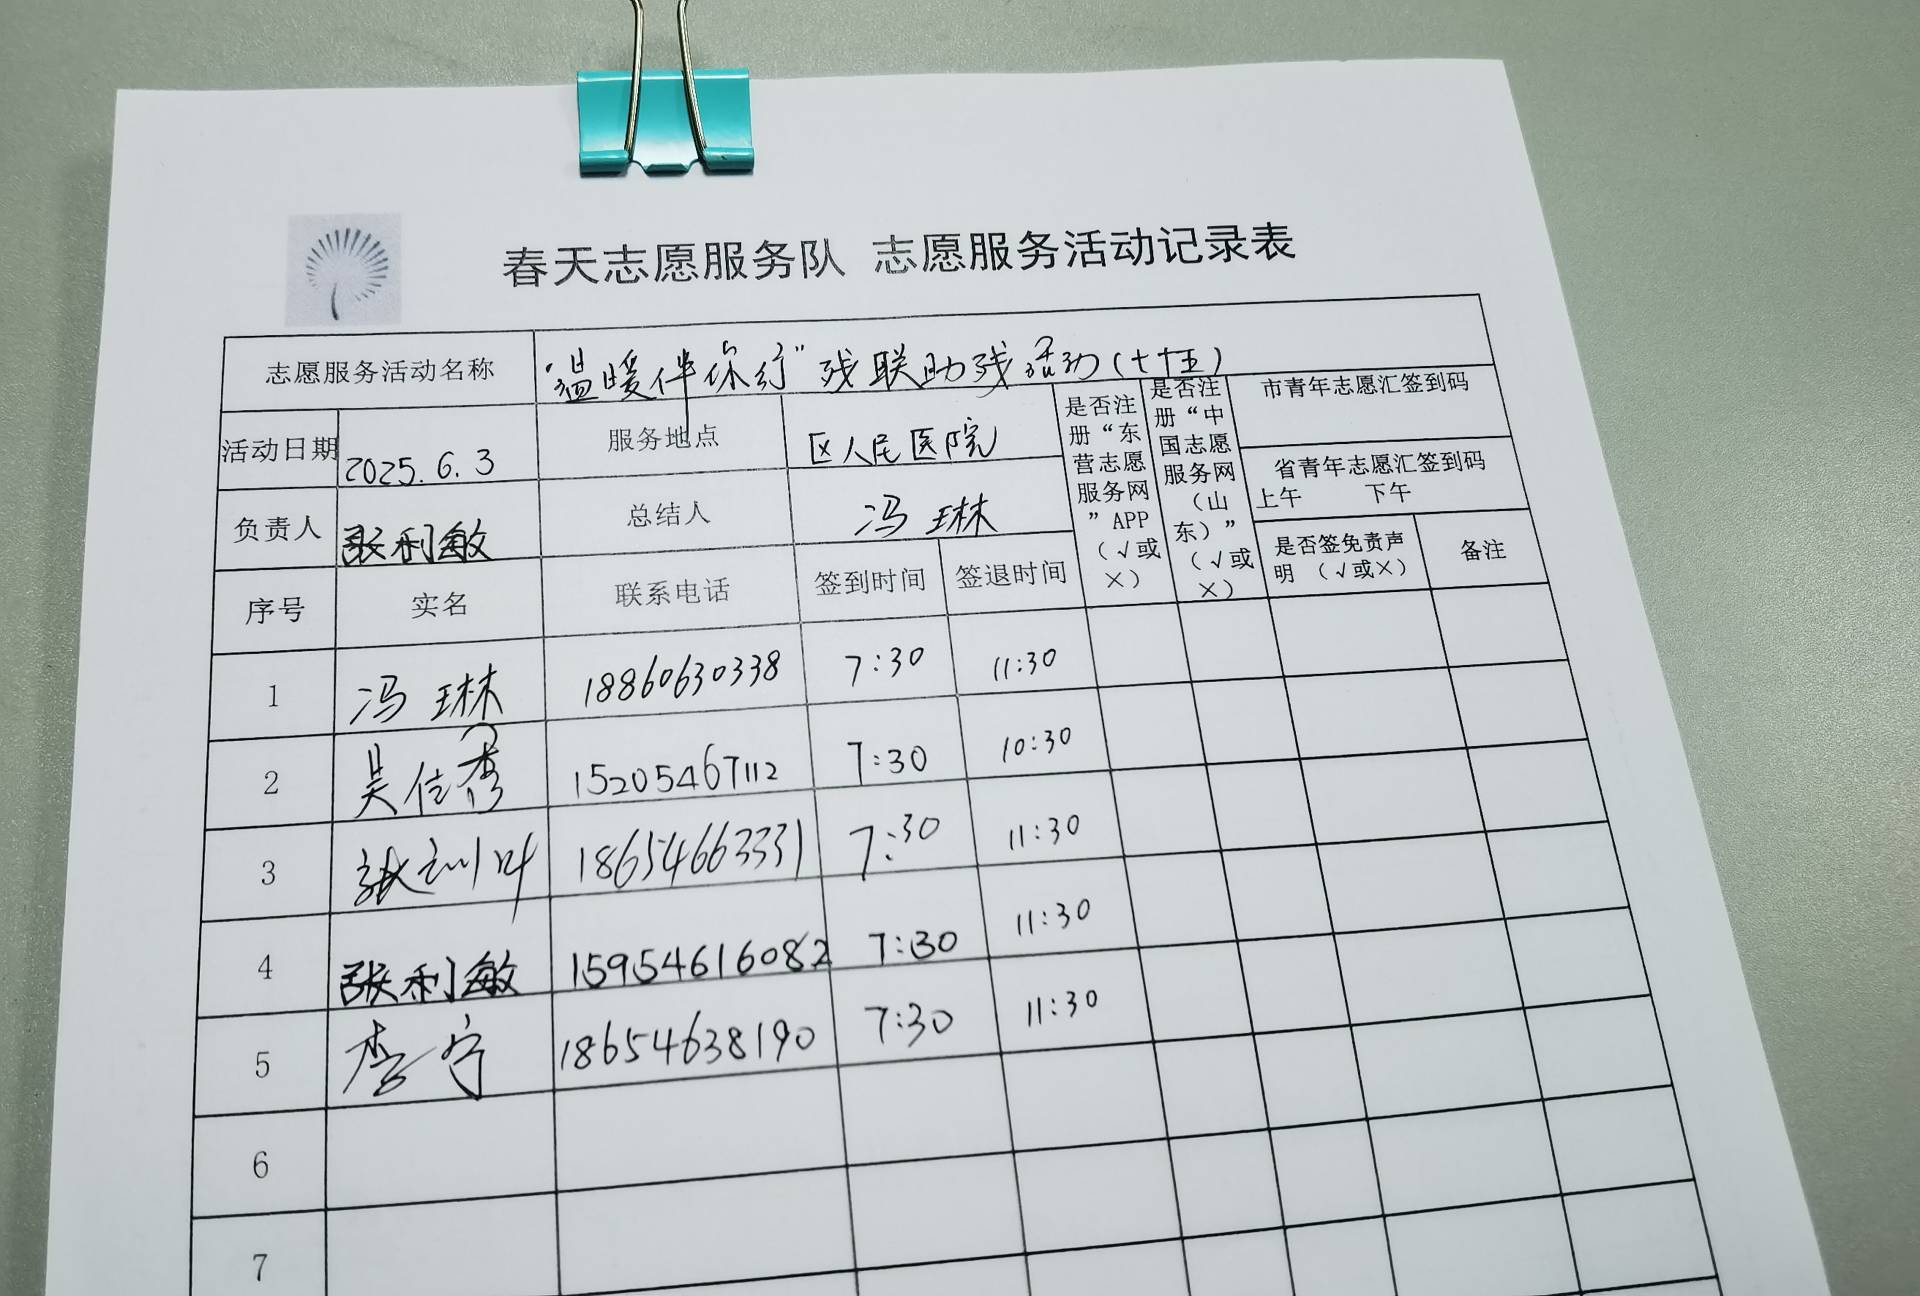 春天志愿服务队 志愿服务活动记录表
志愿服务活动名称 "温暖伴你行"残联助残活动(七十五)
活动日期 2025.6.3 服务地点 区人民医院
负责人 张利敏 总结人 冯琳
是否注册“东营志愿服务网”APP(√或×)
是否注册“中国志愿服务网(山东)”(√或×)
市青年志愿汇签到码
省青年志愿汇签到码
上午 下午
是否签免责声明 (√或×) 备注
序号 实名 联系电话 签到时间 签退时间
1 冯琳 18860630338 7:30 11:30
2 吴俊秀 15205467112 7:30 10:30
3 张 18654663331 7:30 11:30
4 张利敏 15954616082 7:30 11:30
5 李宁 18654638190 7:30 11:30
6
7